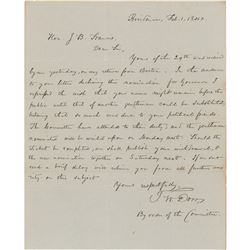 Providence, Feb. 1, 1840
Hon. J. B. Francis,
Dear Sir,
Yours of the 29th was received
by me yesterday, on my return from Boston. In the answer
to your letter declining the nomination for Governor I
expressed the wish that your name might remain before the
public until that of another gentleman could be substituted,
taking that so much was due to your political friends.
The Committee have attended to this duty; and the gentleman
nominated will be waited upon on Monday next. Should the
Ticket be completed, we shall publish your withdrawal, &
the new nomination together on Saturday next. If you
send a brief delay will relieve you from all further
on this subject
Yours respectfully,
T. W. Dorr,
By order of the Committee.